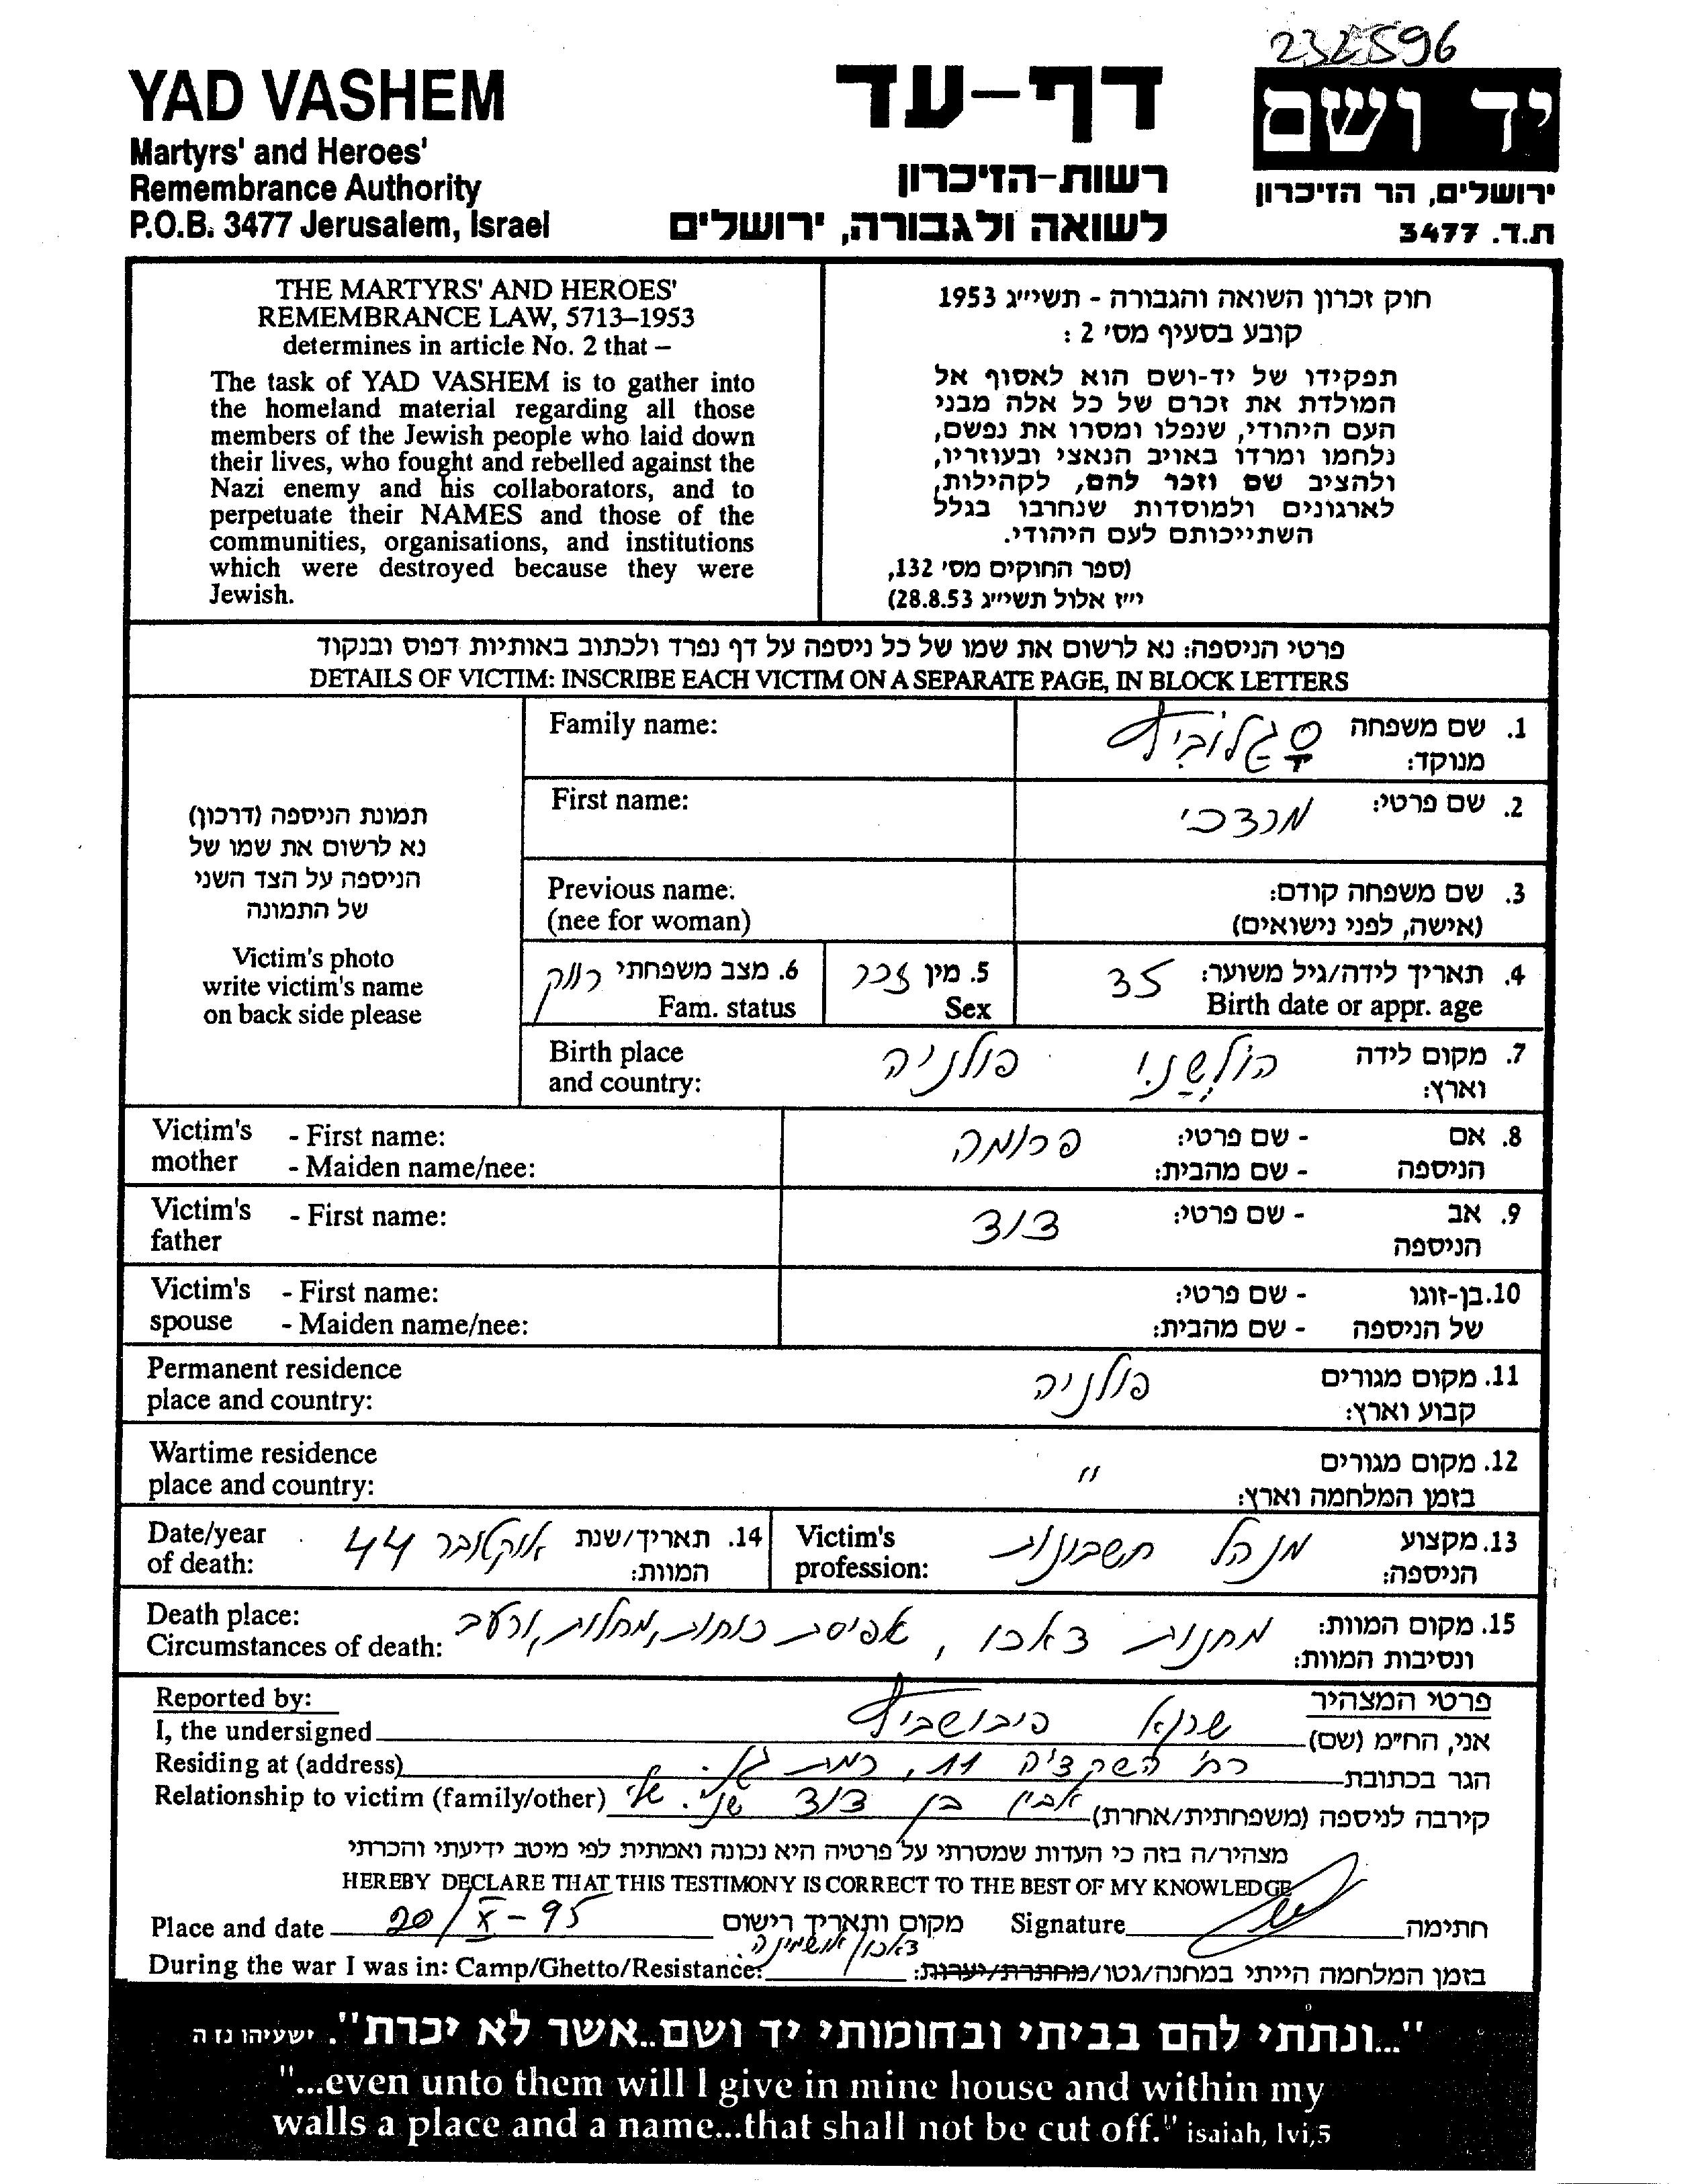 232596
YAD VASHEM
Martyrs' and Heroes'
Remembrance Authority
P.O.B. 3477 Jerusalem, Israel
דף-עד
רשות-הזיכרון
לשואה ולגבורה, ירושלים
יד ושם
ירושלים, הר הזיכרון
ת.ד. 3477
THE MARTYRS' AND HEROES'
REMEMBRANCE LAW, 5713–1953
determines in article No. 2 that –
The task of YAD VASHEM is to gather into
the homeland material regarding all those
members of the Jewish people who laid down
their lives, who fought and rebelled against the
Nazi enemy and his collaborators, and to
perpetuate their NAMES and those of the
communities, organisations, and institutions
which were destroyed because they were
Jewish.
חוק זכרון השואה והגבורה - תשי״ג 1953
קובע בסעיף מס׳ 2 :
תפקידו של יד-ושם הוא לאסוף אל
המולדת את זכרם של כל אלה מבני
העם היהודי, שנפלו ומסרו את נפשם,
נלחמו ומרדו באויב הנאצי ובעוזריו,
ולהציב שם וזכר להם, לקהילות,
לארגונים ולמוסדות שנחרבו בגלל
השתייכותם לעם היהודי.
(ספר החוקים מס׳ 132,
י״ז אלול תשי״ג 28.8.53)
פרטי הניספה: נא לרשום את שמו של כל ניספה על דף נפרד ולכתוב באותיות דפוס ובנקוד
DETAILS OF VICTIM: INSCRIBE EACH VICTIM ON A SEPARATE PAGE, IN BLOCK LETTERS
תמונת הניספה (דרכון)
נא לרשום את שמו של
הניספה על הצד השני
של התמונה
Victim's photo
write victim's name
on back side please
Family name: סגלוביץ 1. שם משפחה
מנוקד:
First name: מרדכי 2. שם פרטי:
Previous name: 3. שם משפחה קודם:
(nee for woman) (אישה, לפני נישואים)
4. תאריך לידה/גיל משוער: 35 5. מין זכר 6. מצב משפחתי רווק
Birth date or appr. age Sex Fam. status
Birth place הולשני פולניה 7. מקום לידה
and country: וארץ:
Victim's - First name: פרומה - שם פרטי: 8. אם
mother - Maiden name/nee: - שם מהבית: הניספה
Victim's - First name: דוד - שם פרטי: 9. אב
father הניספה
Victim's - First name: - שם פרטי: 10. בן-זוגו
spouse - Maiden name/nee: - שם מהבית: של הניספה
Permanent residence פולניה 11. מקום מגורים
place and country: קבוע וארץ:
Wartime residence " 12. מקום מגורים
place and country: בזמן המלחמה וארץ:
13. מקצוע מנהל חשבונות Victim's
הניספה: profession:
14. תאריך/שנת אוקטובר 44 Date/year
המוות: of death:
Death place: מחנות דאכו, אפיסת כוחות, מחלות, ורעב 15. מקום המוות:
Circumstances of death: ונסיבות המוות:
Reported by: פרטי המצהיר
I, the undersigned שרגא ביבושביץ אני, הח״מ (שם)
Residing at (address) רח׳ השקדיה 11, רמת גן. הגר בכתובת
Relationship to victim (family/other) בן דוד שני שלי קירבה לניספה (משפחתית/אחרת)
מצהיר/ה בזה כי העדות שמסרתי על פרטיה היא נכונה ואמתית לפי מיטב ידיעתי והכרתי
HEREBY DECLARE THAT THIS TESTIMONY IS CORRECT TO THE BEST OF MY KNOWLEDGE
Place and date 20/X-95 מקום ותאריך רישום Signature חתימה
During the war I was in: Camp/Ghetto/Resistance: דאכו בזמן המלחמה הייתי במחנה/גטו/מחתרת/יערות:
"...ונתתי להם בביתי ובחומותי יד ושם..אשר לא יכרת". ישעיהו נז ה
"...even unto them will I give in mine house and within my
walls a place and a name...that shall not be cut off." isaiah, lvi,5